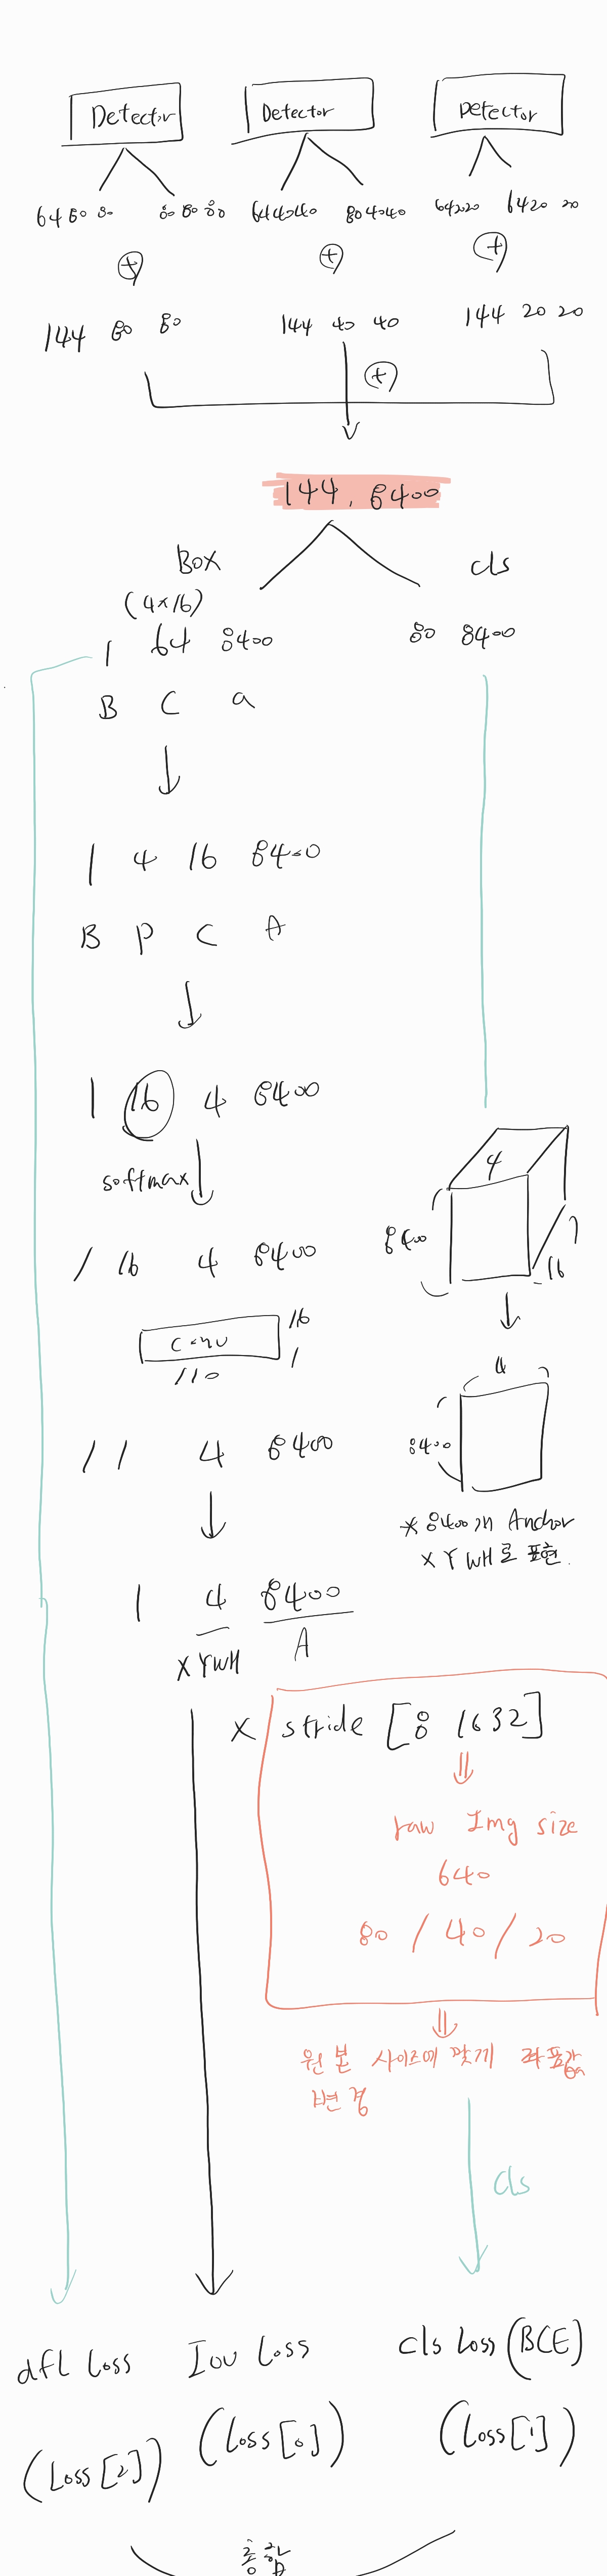 Detector Detector Detector
64 80 80 80 80 80 64 40 40 80 40 40 64 20 20 64 20 20
+ + +
144 80 80 144 40 40 144 20 20
+
144, 8400
Box cls
(4×16)
1 64 8400 80 8400
B C a
1 4 16 8400
B P C A
1 16 4 8400
softmax
4
8400
16
1 16 4 8400
conv 16
1
1 1 0
4
1 1 4 8400
8400
* 8400개 Anchor
XYWH로 표현.
1 4 8400
XYWH A
× stride [8 16 32]
raw Img size
640
80 / 40 / 20
원본 사이즈에 맞게 좌표값
변경
cls
dfl Loss Iou Loss cls Loss (BCE)
(Loss[2]) (Loss[0]) (Loss[1])
종합